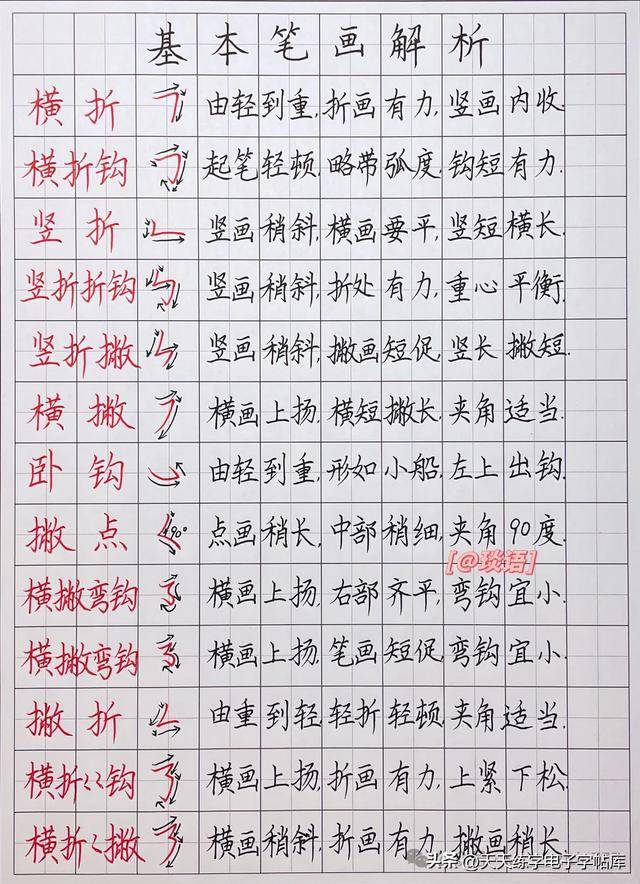 基本笔画解析
横折 由轻到重,折画有力,竖画内收.
横折钩 起笔轻顿,略带弧度,钩短有力.
竖折 竖画稍斜,横画要平,竖短横长.
竖折折钩 竖画稍斜,折处有力,重心平衡.
竖折撇 竖画稍斜,撇画短促,竖长撇短.
横撇 横画上扬,横短撇长,夹角适当.
卧钩 由轻到重,形如小船,左上出钩.
撇点 90° 点画稍长,中部稍细,夹角90度.
[@琰语]
横撇弯钩 横画上扬,右部齐平,弯钩宜小.
横撇弯钩 横画上扬,笔画短促,弯钩宜小.
撇折 由重到轻,轻折轻顿,夹角适当.
横折㇀㇀钩 横画上扬,折画有力,上紧下松.
横折㇀撇 横画稍斜,折画有力,撇画稍长.
头条 @天天练字电子字帖库